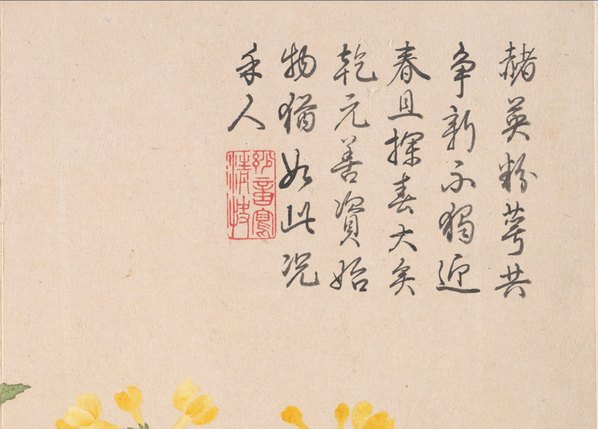 赭英粉萼共
争新不獨迎
春且探春大矣
乾元善資始
物猶如此况
乎人
妙意寫
清快